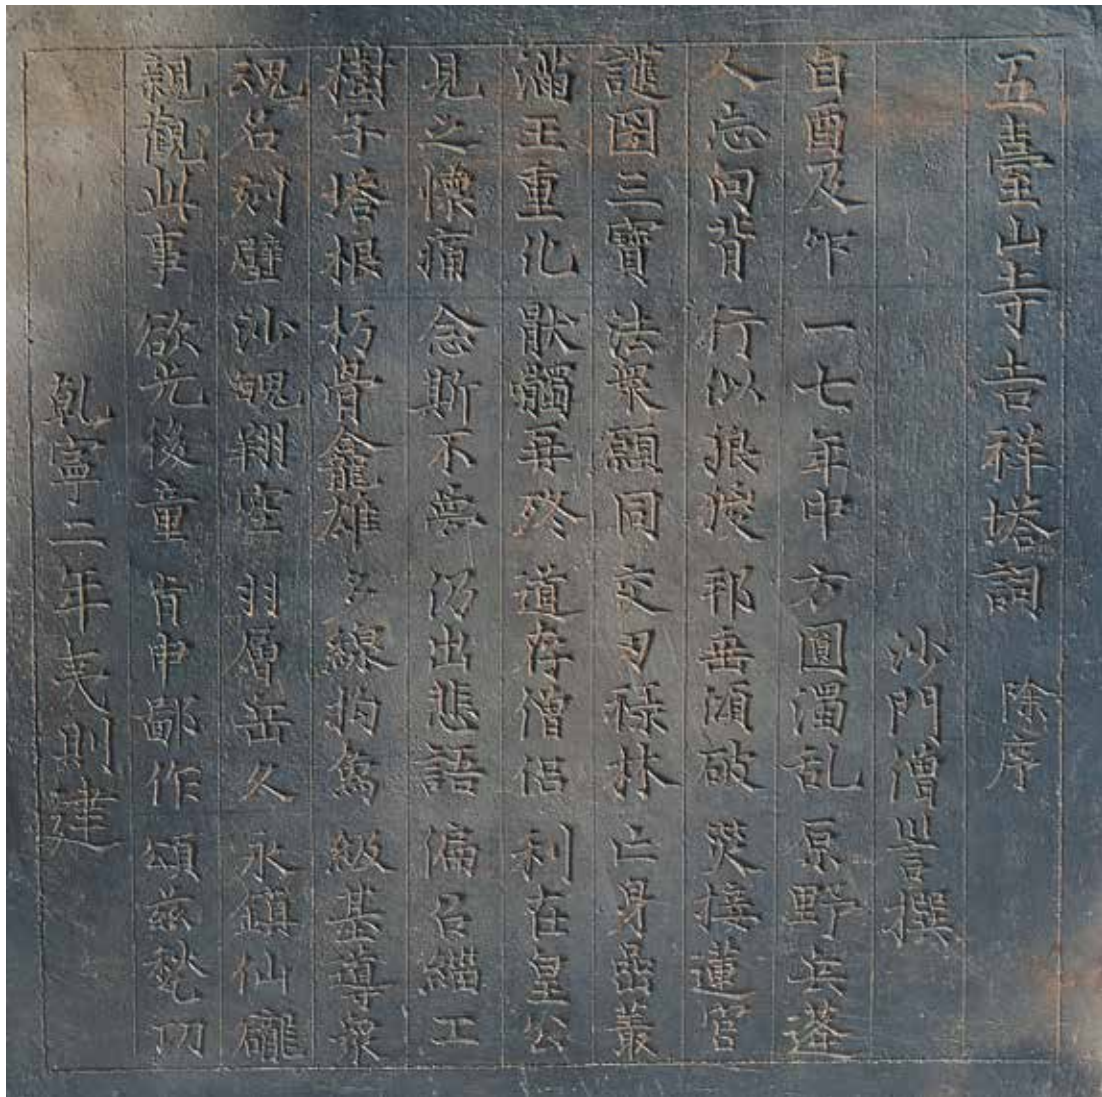 五臺山寺吉祥塔詞 除序
沙門僧訔撰
自酉及乍 一七年中 方圓濁乱 原野兵蓬
人忘向背 行以狼㹱 邦垂傾破 災接蓮宮
護国三寶 法衆願同 交刃祿林 亡身嵒叢
濡王重化 猷觸再終 道存僧侶 利在皇公
見之懷痛 念斯不無 仍出悲語 偏召緇工
樹子塔根 朽骨龕雄 多線拘焉 級基導衆
魂名刻壁 沙魄翔空 羽層岳久 永鎮仙龐
親觀此事 欲光後童 肯申鄙作 頌兹㽔功
乹寧二年夷則建